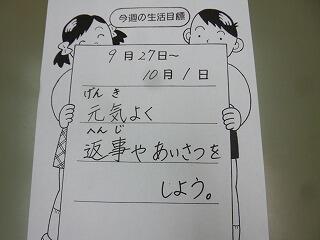 今週の生活目標
9月27日～
10月1日
げんき
元気よく
へんじ
返事やあいさつを
しよう。